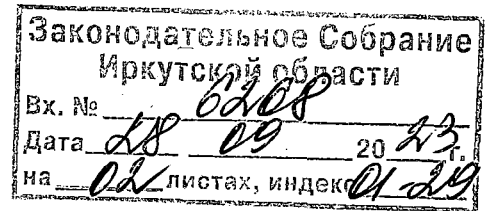 Законодательное Собрание
Иркутской области
Вх. № 6268
Дата 28 09 2023 г.
на 02 листах, индекс 01-29